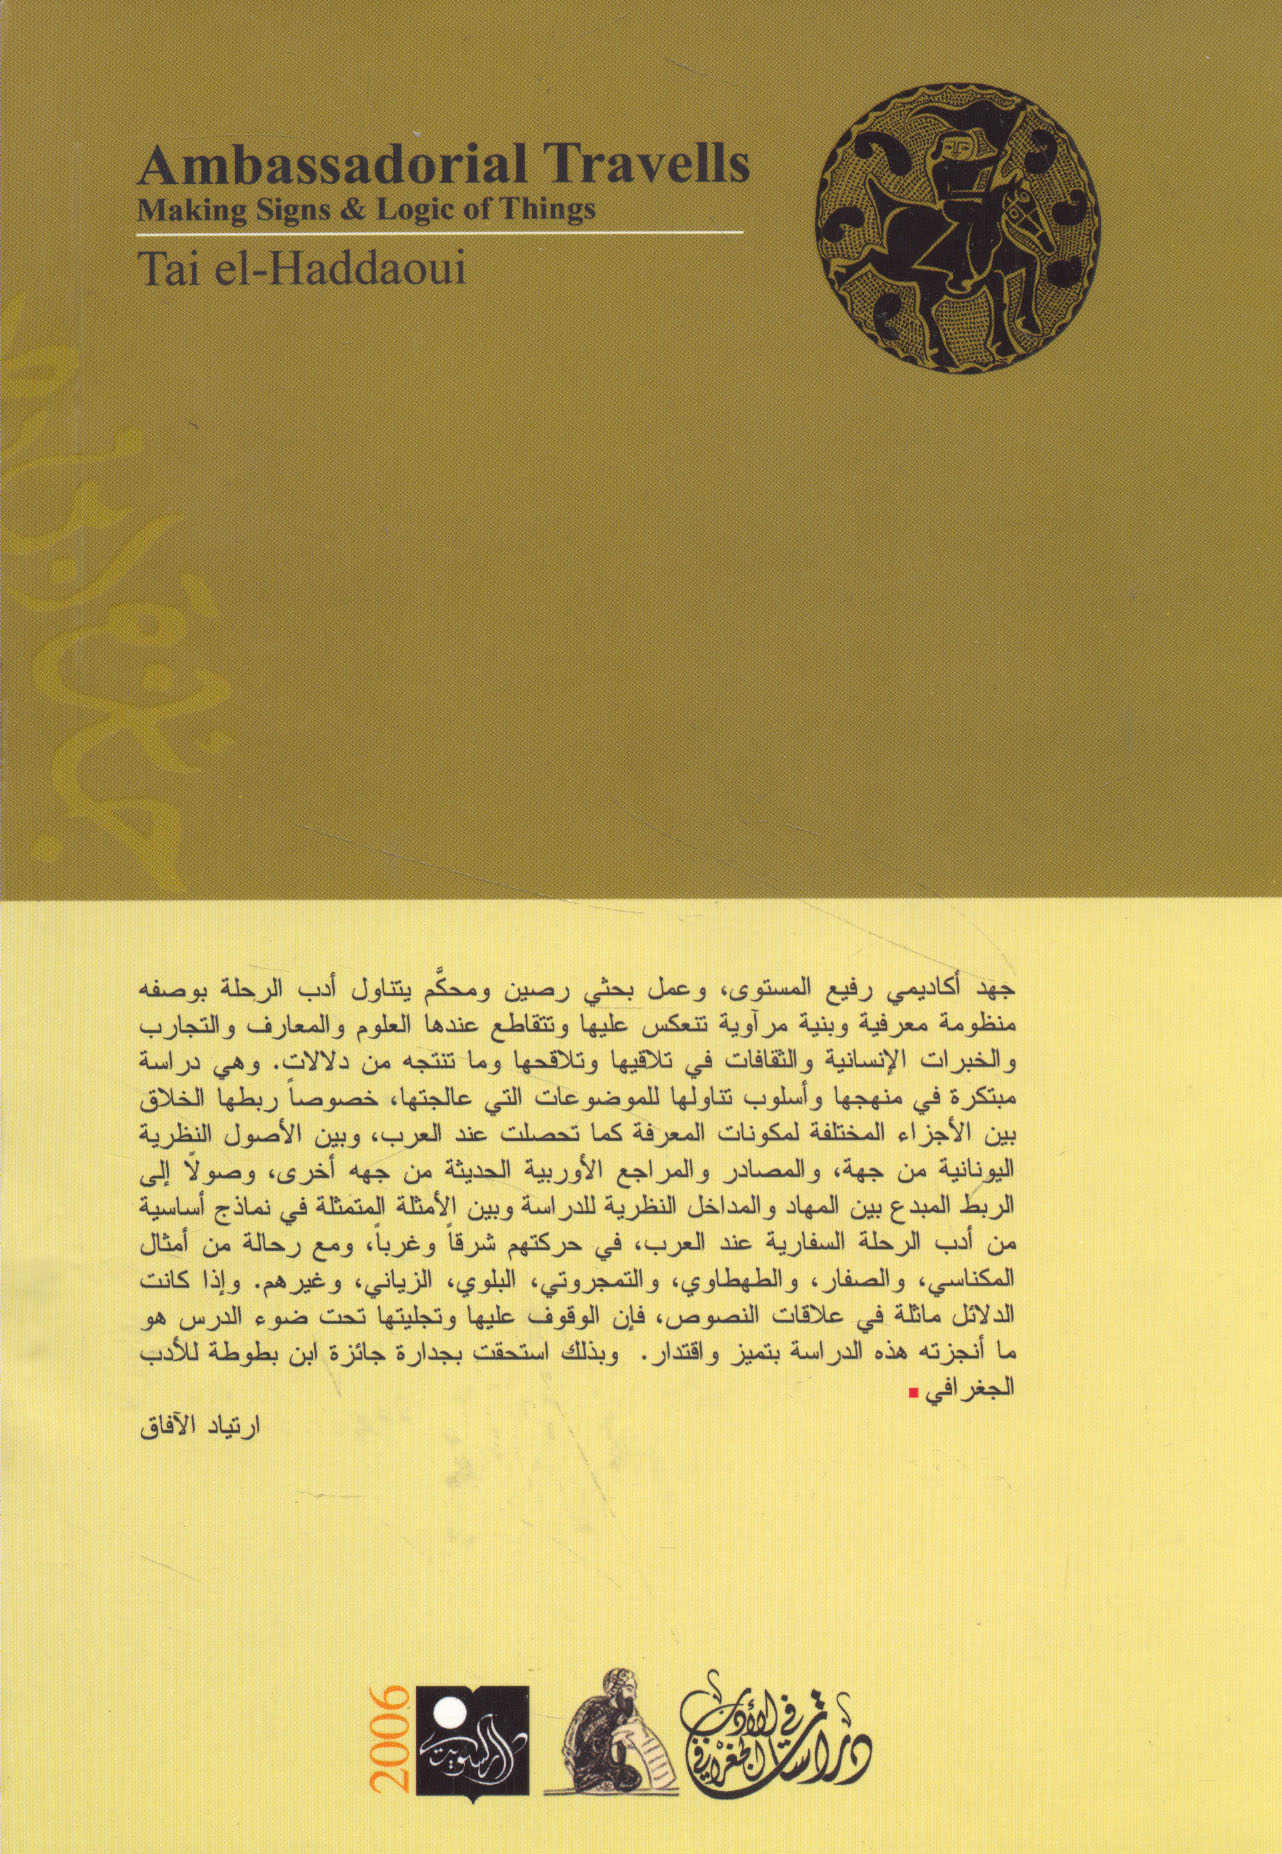 Ambassadorial Travells
Making Signs & Logic of Things
Tai el-Haddaoui
جهد أكاديمي رفيع المستوى، وعمل بحثي رصين ومحكَّم يتناول أدب الرحلة بوصفه
منظومة معرفية وبنية مرآوية تنعكس عليها وتتقاطع عندها العلوم والمعارف والتجارب
والخبرات الإنسانية والثقافات في تلاقيها وتلاقحها وما تنتجه من دلالات. وهي دراسة
مبتكرة في منهجها وأسلوب تناولها للموضوعات التي عالجتها، خصوصاً ربطها الخلاق
بين الأجزاء المختلفة لمكونات المعرفة كما تحصلت عند العرب، وبين الأصول النظرية
اليونانية من جهة، والمصادر والمراجع الأوربية الحديثة من جهه أخرى، وصولاً إلى
الربط المبدع بين المهاد والمداخل النظرية للدراسة وبين الأمثلة المتمثلة في نماذج أساسية
من أدب الرحلة السفارية عند العرب، في حركتهم شرقاً وغرباً، ومع رحالة من أمثال
المكناسي، والصفار، والطهطاوي، والتمجروتي، البلوي، الزياني، وغيرهم. وإذا كانت
الدلائل ماثلة في علاقات النصوص، فإن الوقوف عليها وتجليتها تحت ضوء الدرس هو
ما أنجزته هذه الدراسة بتميز واقتدار. وبذلك استحقت بجدارة جائزة ابن بطوطة للأدب
الجغرافي
ارتياد الآفاق
دراسات في الأدب الجغرافي
دار السويدي
2006